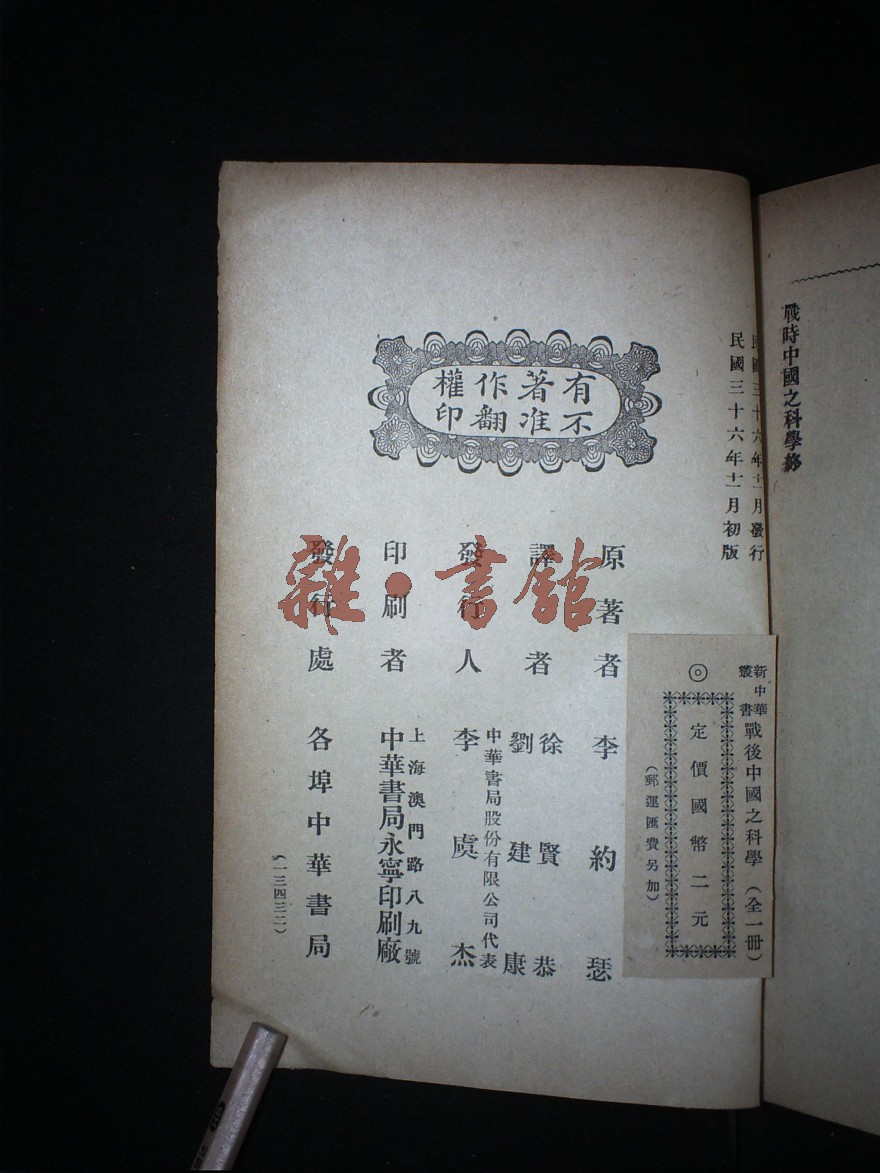 戰時中國之科學終
民國三十六年十一月發行
民國三十六年十一月初版
新中華叢書 戰後中國之科學 (全一冊)
◎ 定價國幣二元
(郵運匯費另加)
有著作權
不准翻印
原著者 李約瑟
譯者 徐賢恭
劉建康
發行人 中華書局股份有限公司代表
李虞杰
印刷者 上海澳門路八九號
中華書局永寧印刷廠
發行處 各埠中華書局
(一三四三二)
雜·書館